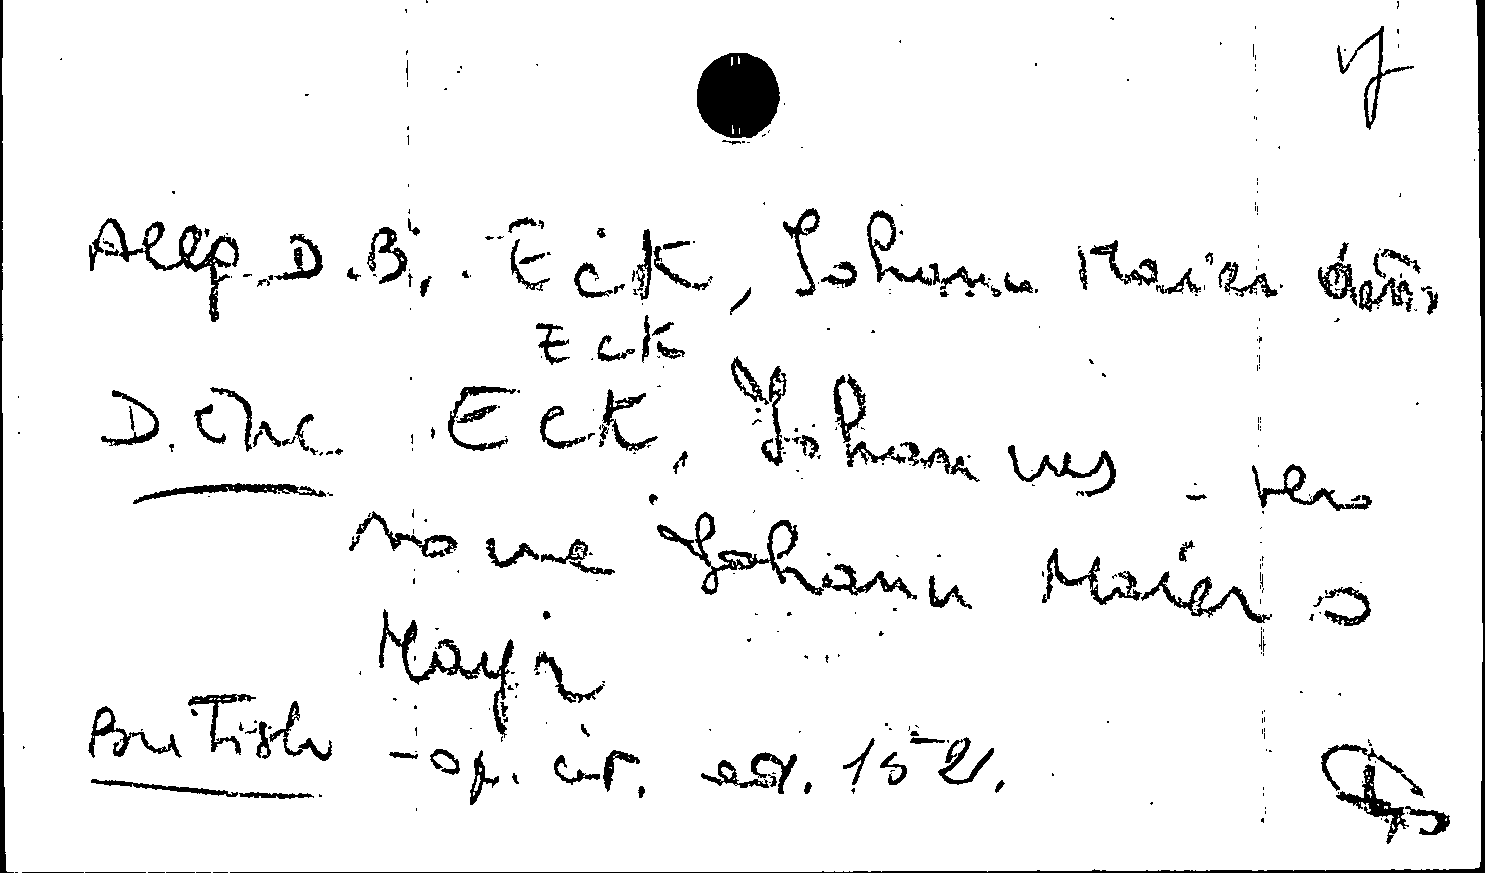 Allg. D.B. - Eck, Johann Maier detto
Eck
D. Enc. Eck, Johannes - vero
nome Johann Maier o
Mayr
British - op. cit. ed. 1521.